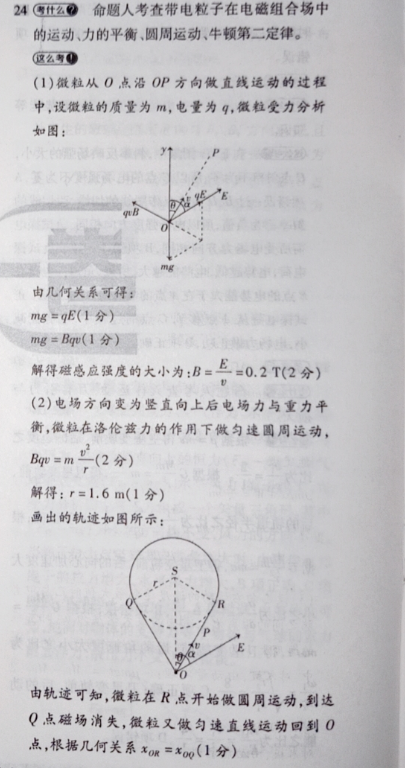 24 考什么? 命题人考查带电粒子在电磁组合场中
的运动、力的平衡、圆周运动、牛顿第二定律。
怎么考!
(1)微粒从 O 点沿 OP 方向做直线运动的过程
中,设微粒的质量为 m,电量为 q,微粒受力分析
如图:
y
P
θ
α
qE
E
qvB
O
mg
由几何关系可得:
mg = qE(1 分)
mg = Bqv(1 分)
解得磁感应强度的大小为:B = E/v = 0.2 T(2 分)
(2)电场方向变为竖直向上后电场力与重力平
衡,微粒在洛伦兹力的作用下做匀速圆周运动,
Bqv = m v²/r (2 分)
解得:r = 1.6 m(1 分)
画出的轨迹如图所示:
S
r
Q
R
P
v
E
θ
α
O
由轨迹可知,微粒在 R 点开始做圆周运动,到达
Q 点磁场消失,微粒又做匀速直线运动回到 O
点,根据几何关系 x_OR = x_OQ(1 分)